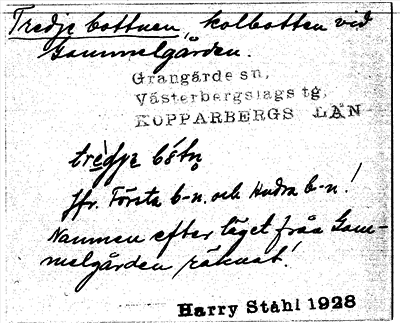 Tredje bottnen, kolbotten vid
Gammelgården.
Grangärde sn,
Västerbergslags tg,
KOPPARBERGS LÄN
tredje båtn
Jfr. Första b-n. och Andra b-n!
Namnen efter läget från Gam-
melgården räknat!
Harry Ståhl 1928